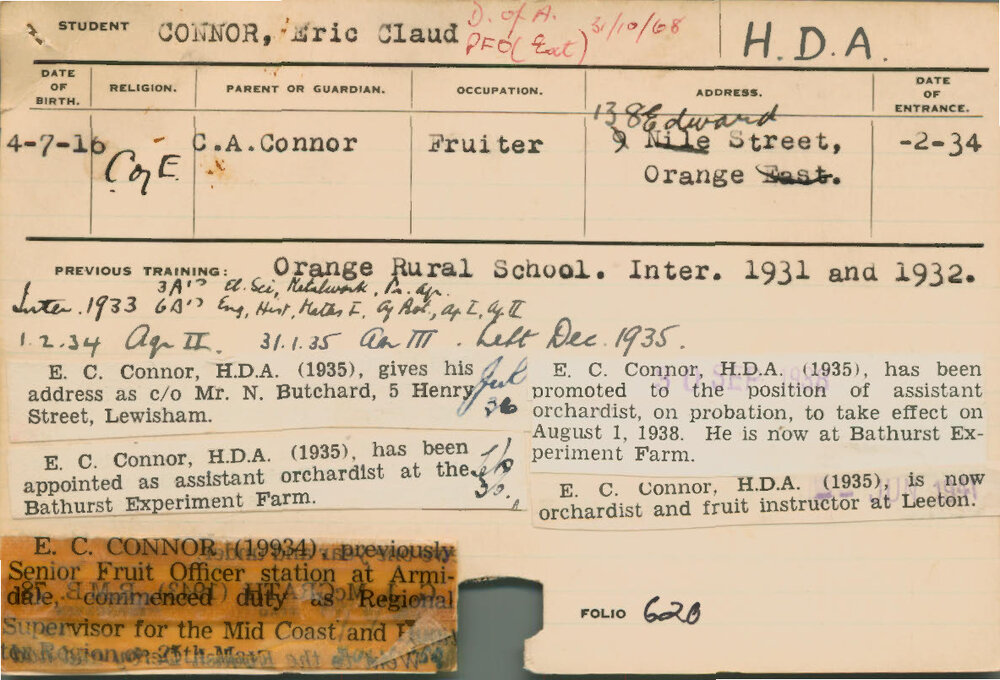 STUDENT CONNOR, Eric Claud
D. of A.
PFO (Ext) 31/10/68
H.D.A.
DATE OF BIRTH. RELIGION. PARENT OR GUARDIAN. OCCUPATION. ADDRESS. DATE OF ENTRANCE.
138 Edward
4-7-16 C of E. C.A.Connor Fruiter 9 Nile Street, -2-34
Orange East.
PREVIOUS TRAINING: Orange Rural School. Inter. 1931 and 1932.
3A's El. Sci, Metalwork, Pr. Agr.
Inter. 1933 6A's Eng, Hist, Maths I, Ag Bot, Ag I, Ag II
1.2.34 Agr II. 31.1.35 Agr III. Left Dec. 1935.
E. C. Connor, H.D.A. (1935), gives his
address as c/o Mr. N. Butchard, 5 Henry
Street, Lewisham.
36
E. C. Connor, H.D.A. (1935), has been
appointed as assistant orchardist at the
Bathurst Experiment Farm.
E. C. Connor, H.D.A. (1935), has been
promoted to the position of assistant
orchardist, on probation, to take effect on
August 1, 1938. He is now at Bathurst Ex-
periment Farm.
SEP 1938
E. C. Connor, H.D.A. (1935), is now
orchardist and fruit instructor at Leeton.
JUN 1941
E. C. CONNOR (19934), previously
Senior Fruit Officer station at Armi-
dale, commenced duty as Regional
Supervisor for the Mid Coast and
Region
FOLIO 620